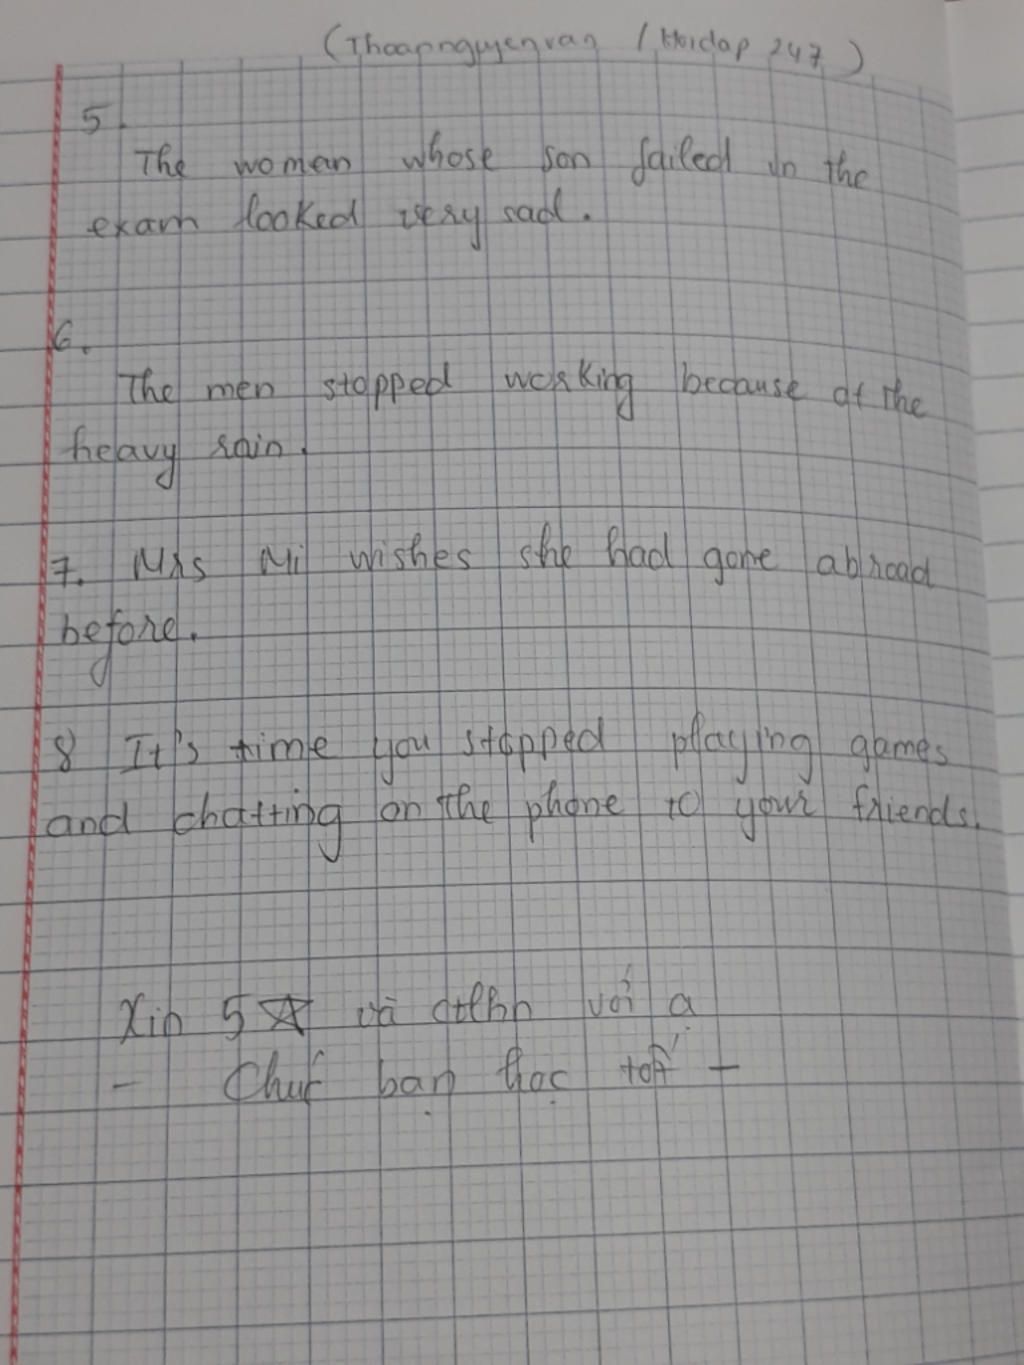 (Thoapnguyenvan / Hoidap 247)
5.
The woman whose son failed in the
exam looked very sad.
6.
The men stopped working because of the
heavy rain.
7. Mrs Mi wishes she had gone abroad
before.
8 It's time you stopped playing games
and chatting on the phone to your friends.
Xin 5 ☆ và ctlhn với ạ
- Chúc bạn học tốt -